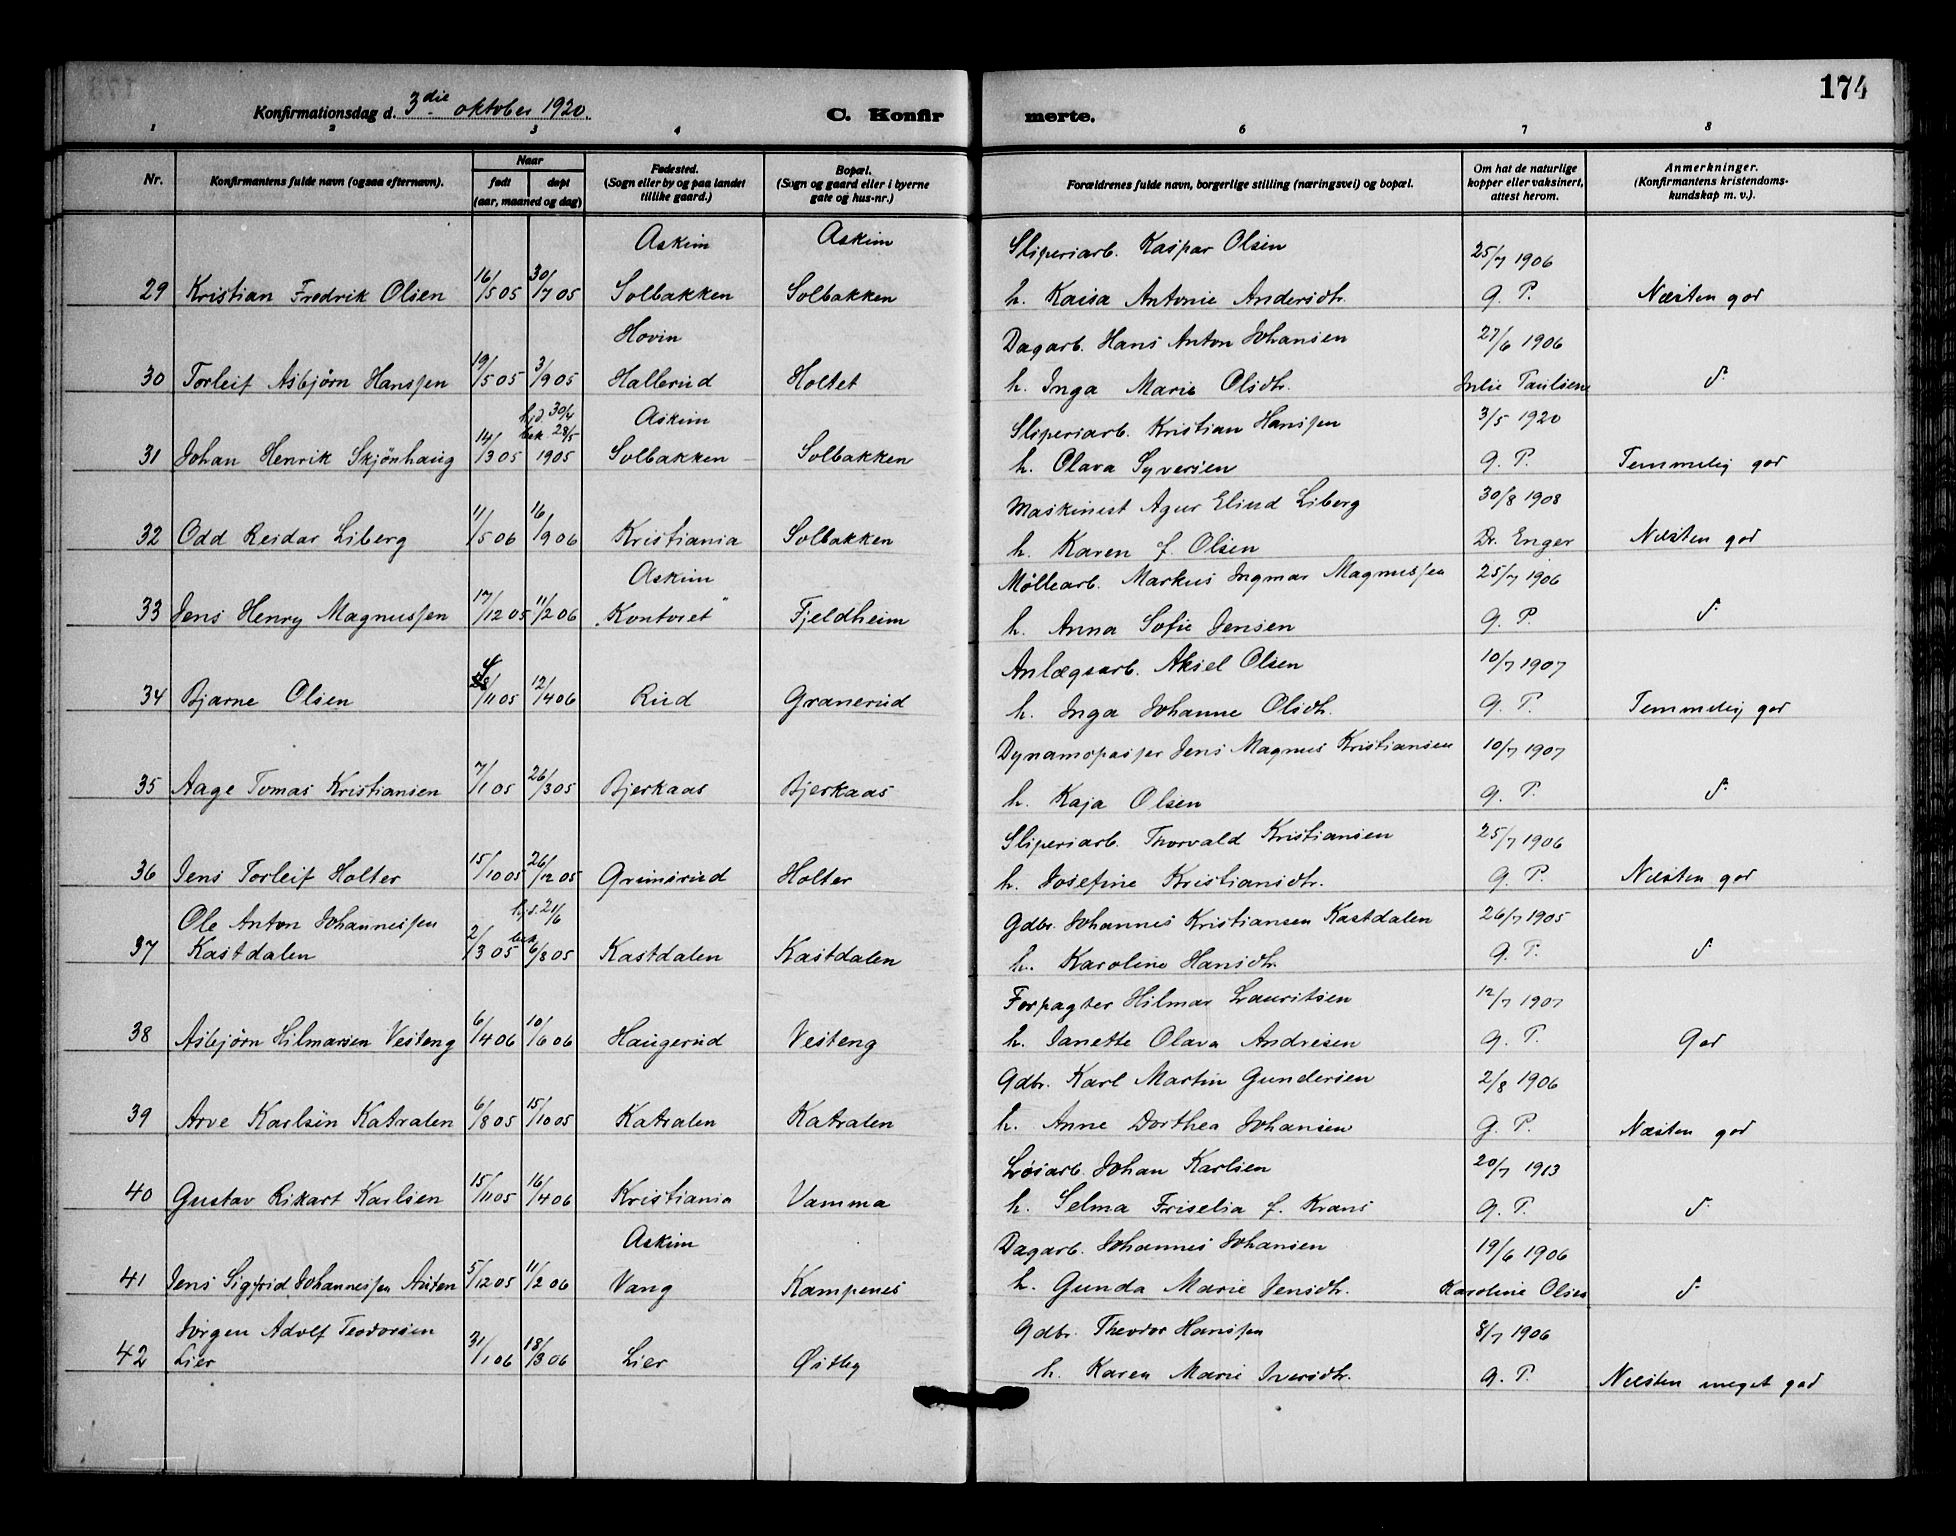 174
Konfirmationsdag d. 3die oktober 1920.
C. Konfir merte.
1 2 3 4 6 7 8
Nr.
Konfirmantens fulde navn (ogsaa efternavn).
Naar
født
døpt
(aar, maaned og dag)
Fødested.
(Sogn eller by og paa landet
tillike gaard.)
Bopæl.
(Sogn og gaard eller i byerne
gate og hus-nr.)
Forældrenes fulde navn, borgerlige stilling (næringsvei) og bopæl.
Om hat de naturlige
kopper eller vaksinert,
attest herom.
Anmerkninger.
(Konfirmantens kristendoms-
kundskap m. v.).
Askim Askim Sliperiarb. Kaspar Olsen 25/7 1906
29 Kristian Fredrik Olsen 16/5 05 30/7 05 Solbakken Solbakken h. Kaisa Antonie Andersdtr. G. P. Næsten god
Hovin Dagarb. Hans Anton Johansen 27/6 1906
30 Torleif Asbjørn Hanssen 19/5 05 3/9 05 Hallerud Holtet h. Inga Marie Olsdtr. Julie Paulsen d.
hjd. 30/4 Askim Sliperiarb. Kristian Hanssen 3/5 1920
bek. 28/5
31 Johan Henrik Skjønhaug 14/3 05 1905 Solbakken Solbakken h. Olava Syversen G. P. Temmelig god
Maskinist Agur Eliud Liberg 30/8 1908
32 Odd Reidar Liberg 11/5 06 16/9 06 Kristiania Solbakken h. Karen f. Olsen Dr. Enger Næsten god
Askim Møllearb. Markus Ingmar Magnussen 25/7 1906
33 Jens Henry Magnussen 17/12 05 11/2 06 „Kontoret" Fjeldheim h. Anna Sofie Jensen G. P. d.
Anlægsarb. Aksel Olsen 10/7 1907
34 Bjarne Olsen /11 05 12/4 06 Rud Granerud h. Inga Johanne Olsdtr. G. P. Temmelig god
Dynamopasser Jens Magnus Kristiansen 10/7 1907
35 Aage Tomas Kristiansen 7/1 05 26/3 05 Bjerkaas Bjerkaas h. Kaja Olsen G. P. d.
Sliperiarb. Thorvald Kristiansen 25/7 1906
36 Jens Torleif Holter 15/10 05 26/12 05 Grimsrud Holter h. Josefine Kristiansdtr. G. P. Næsten god
Ole Anton Johannessen hjd. 21/6 Gdbr. Johannes Kristiansen Kastdalen 26/7 1905
37 Kastdalen 2/3 05 bek. 6/8 05 Kastdalen Kastdalen h. Karoline Hansdtr. G. P. d.
Forpagter Hilmar Lauritsen 12/7 1907
38 Asbjørn Hilmarsen Vesteng 6/4 06 10/6 06 Haugerud Vesteng h. Janette Olava Andresen G. P. God
Gdbr. Karl Martin Gundersen 2/8 1906
39 Arve Karlsen Katralen 6/8 05 15/10 05 Katralen Katralen h. Anne Dorthea Johansen G. P. Næsten god
Løsarb. Johan Karlsen 20/7 1913
40 Gustav Rikart Karlsen 15/11 05 16/4 06 Kristiania Vamma h. Selma Friselia f. Krans G. P. d.
Askim Dagarb. Johannes Johansen 19/6 1906
41 Jens Sigfrid Johannessen Austen 5/12 05 11/2 06 Vang Kampenes h. Gunda Marie Jensdtr. Karoline Olsen d.
Jørgen Adolf Teodorsen Gdbr. Theodor Hanssen 8/7 1906
42 Lier 31/1 06 18/3 06 Lier Østby h. Karen Marie Iversdtr. G. P. Næsten meget god